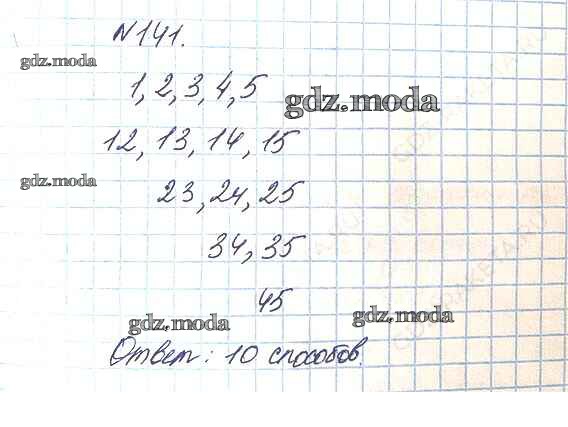 N141.
gdz.moda
1, 2, 3, 4, 5
gdz.moda
12, 13, 14, 15
gdz.moda
23, 24, 25
34, 35
45
gdz.moda
gdz.moda
Ответ: 10 способов.